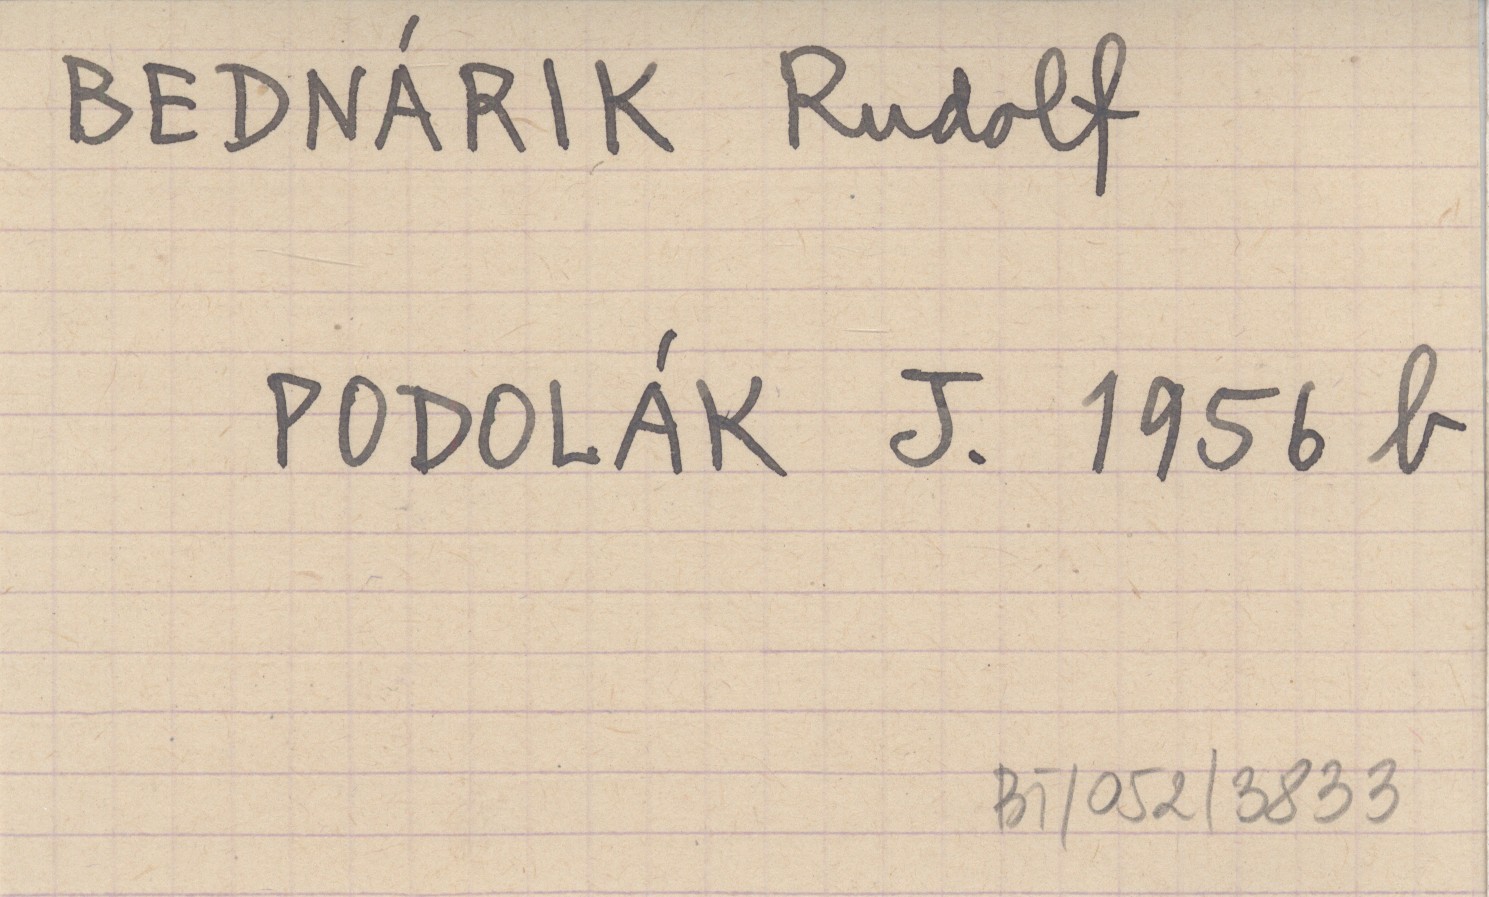 BEDNÁRIK Rudolf
PODOLÁK J. 1956 b
BT/052/3833